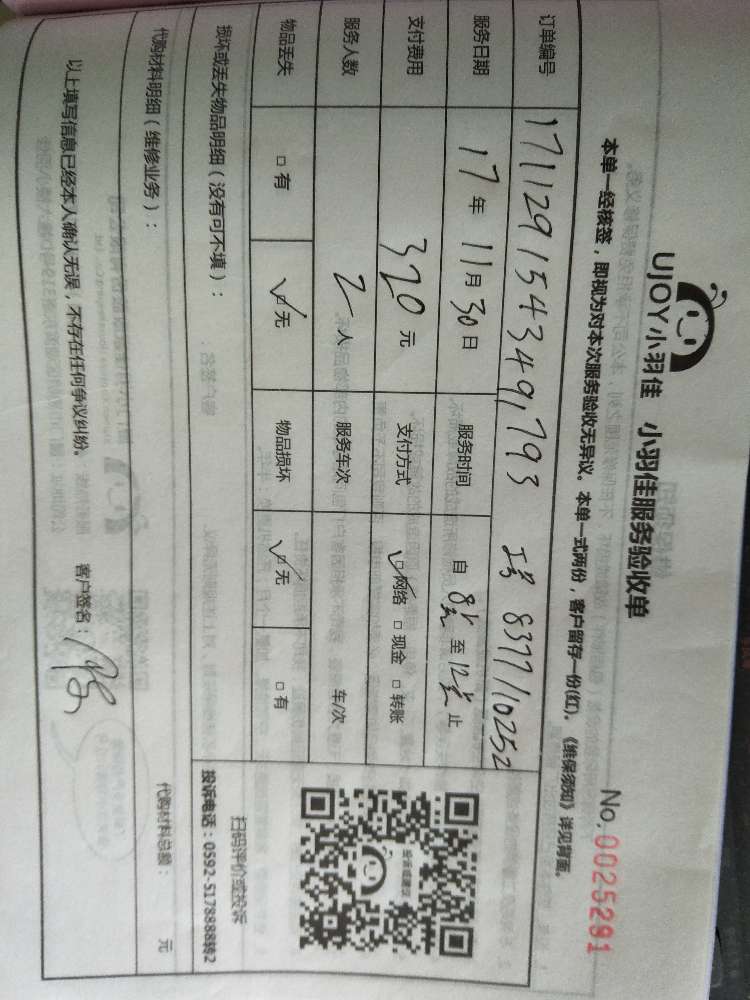 UJOY小羽佳 小羽佳服务验收单
No. 0025291
本单一经核签，即视为对本次服务验收无异议。本单一式两份，客户留存一份(红)。《维保须知》详见背面。
订单编号 171129154349,793 工号 8377/10252
服务日期 17年 11月 30日 服务时间 自 8点 至 12点 止
支付费用 320 元 支付方式 ☑网络 □现金 □转账
服务人数 2 人 服务车次 车/次
物品丢失 □有 ☑无 物品损坏 ☑无 □有
扫码评价或投诉
投诉电话：0592-5178888转2
损坏或丢失物品明细（没有可不填）：
代购材料明细（维修业务）： 代购材料总额： 元
以上填写信息已经本人确认无误，不存在任何争议纠纷。 客户签名：